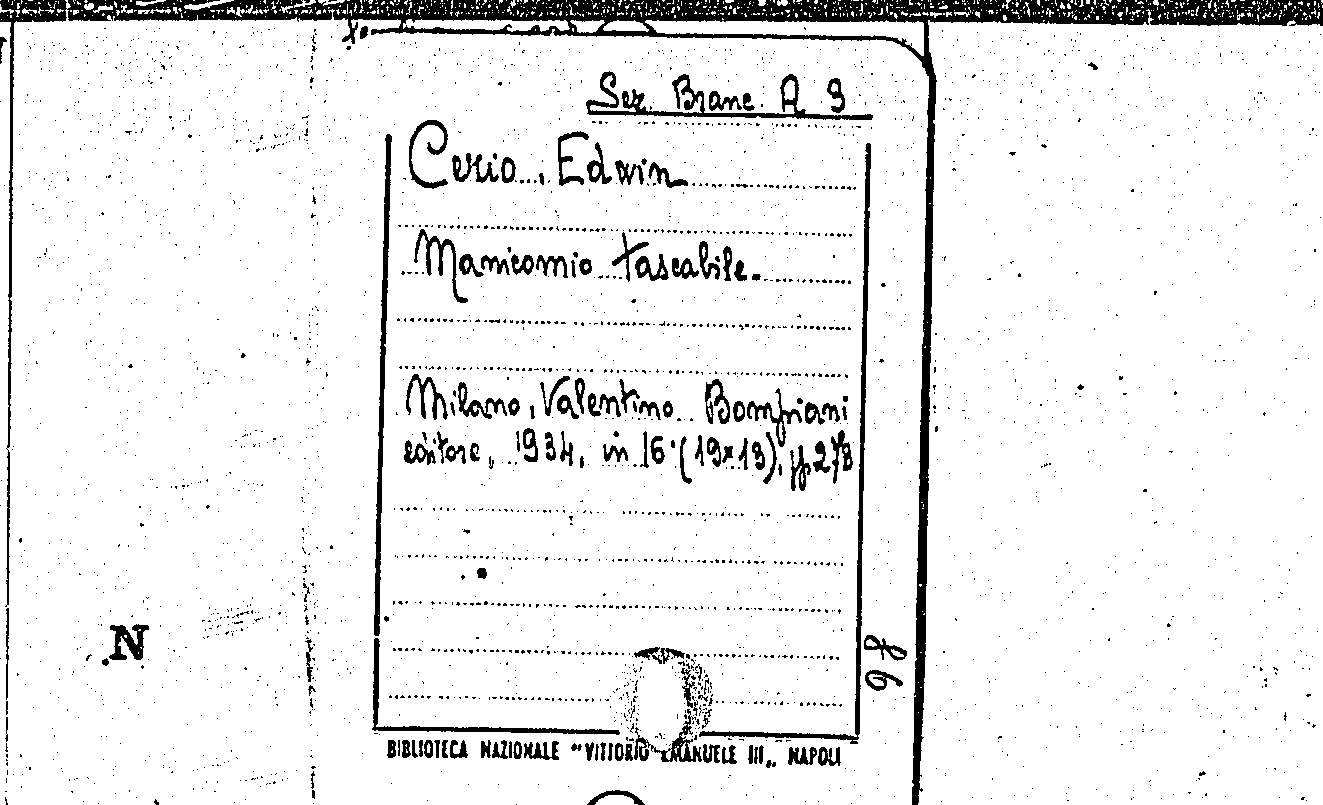 Sez. Branc. A 9
Cerio, Edwin
Manicomio tascabile.
Milano, Valentino Bompiani
editore, 1934, in 16° (19x13), pp. 278
86
N
BIBLIOTECA NAZIONALE "VITTORIO EMANUELE III„ NAPOLI